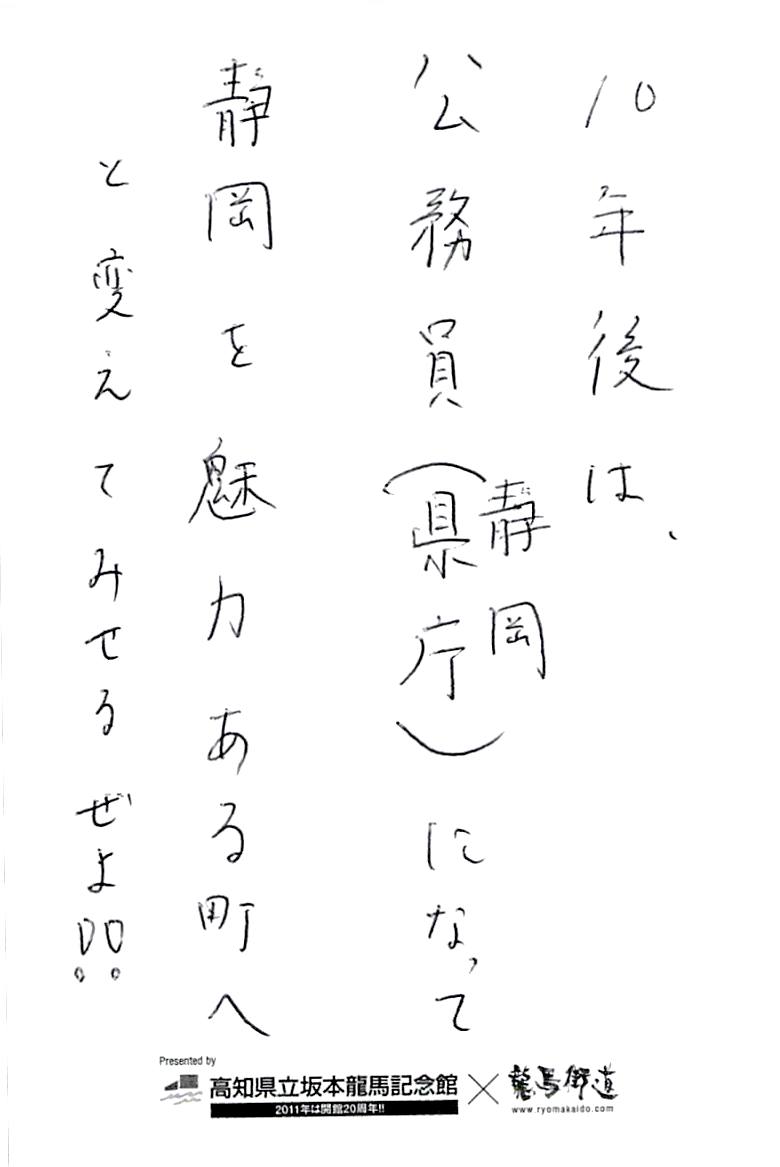 10年後は、
公務員(静岡県庁)になって
静岡を魅力ある町へ
と変えてみせるぜよ!!
Presented by
高知県立坂本龍馬記念館×龍馬街道
2011年は開館20周年!!
www.ryomakaido.com